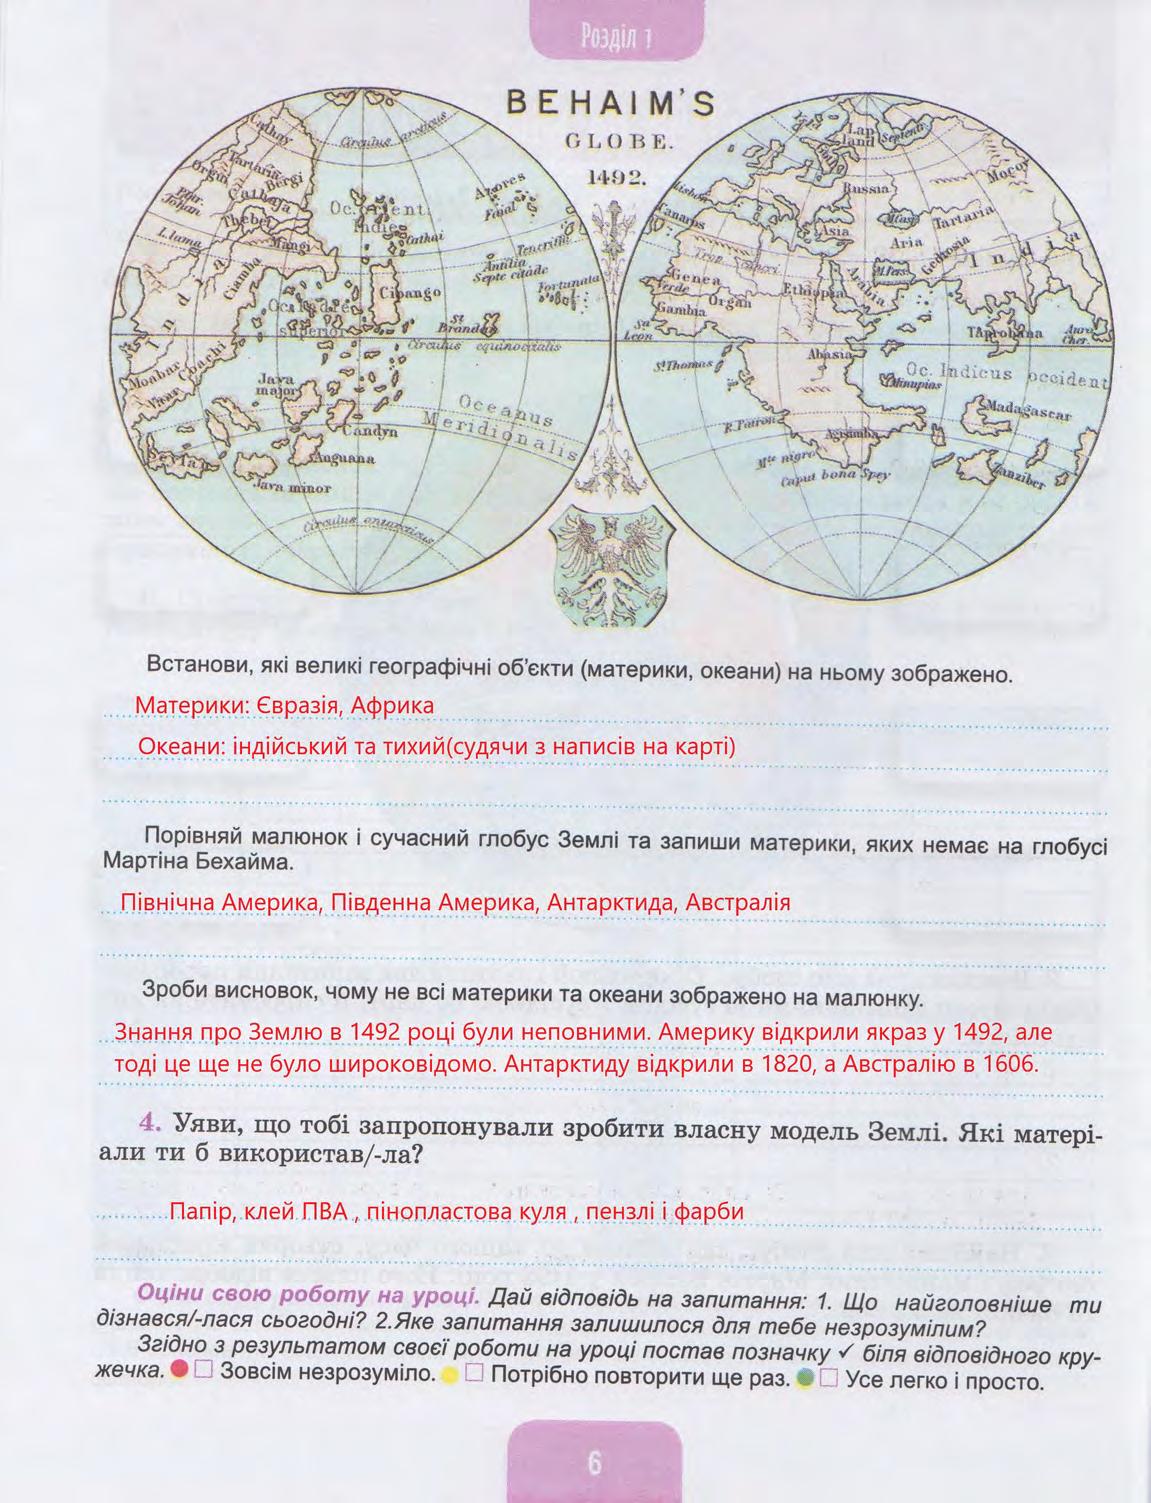 Розділ 1
BEHAIM'S
GLOBE.
1492.
Circulus arcticus
Cathay
Tartaria
Bergi
Thebet
Mangi
I. lama
Ciamba
Oc. Orient.
Indie
Cathai
Azores
Faial
Antilia
Septe citade
Fortunata
Cipango
superior
St Brandan
Circulus equinoctialis
Moabar
Java major
Candyn
Anguana
Java minor
Oceanus
Meridionalis
Circulus antarcticus
Lap land
Septent.
Russia
Mocoy
Tartaria
Asia
Aria
Gedrosia
India
Arabia
Canaris
Genea
Verde
Organ
Gambia
Ethiopia
Leon
St Thomas
Abasia
Taprobana
Oc. Indicus occident.
Madagascar
Zanziber
Agisimba
Mte nigro
Caput bona Spey
Встанови, які великі географічні об'єкти (материки, океани) на ньому зображено.
Материки: Євразія, Африка
Океани: індійський та тихий(судячи з написів на карті)
Порівняй малюнок і сучасний глобус Землі та запиши материки, яких немає на глобусі
Мартіна Бехайма.
Північна Америка, Південна Америка, Антарктида, Австралія
Зроби висновок, чому не всі материки та океани зображено на малюнку.
Знання про Землю в 1492 році були неповними. Америку відкрили якраз у 1492, але
тоді це ще не було широковідомо. Антарктиду відкрили в 1820, а Австралію в 1606.
4. Уяви, що тобі запропонували зробити власну модель Землі. Які матері-
али ти б використав/-ла?
Папір, клей ПВА , пінопластова куля , пензлі і фарби
Оціни свою роботу на уроці. Дай відповідь на запитання: 1. Що найголовніше ти
дізнався/-лася сьогодні? 2.Яке запитання залишилося для тебе незрозумілим?
Згідно з результатом своєї роботи на уроці постав позначку ✓ біля відповідного кру-
жечка. Зовсім незрозуміло. Потрібно повторити ще раз. Усе легко і просто.
6